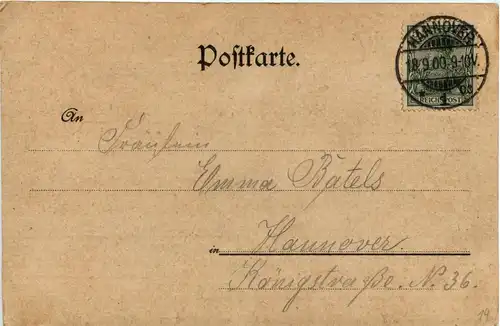 HANNOVER
18.9.00.9-10V.
REICHSPOST
Postkarte.
An
Fräulein
Emma Bätels
in Hannover.
Königstraße. N. 36.
19